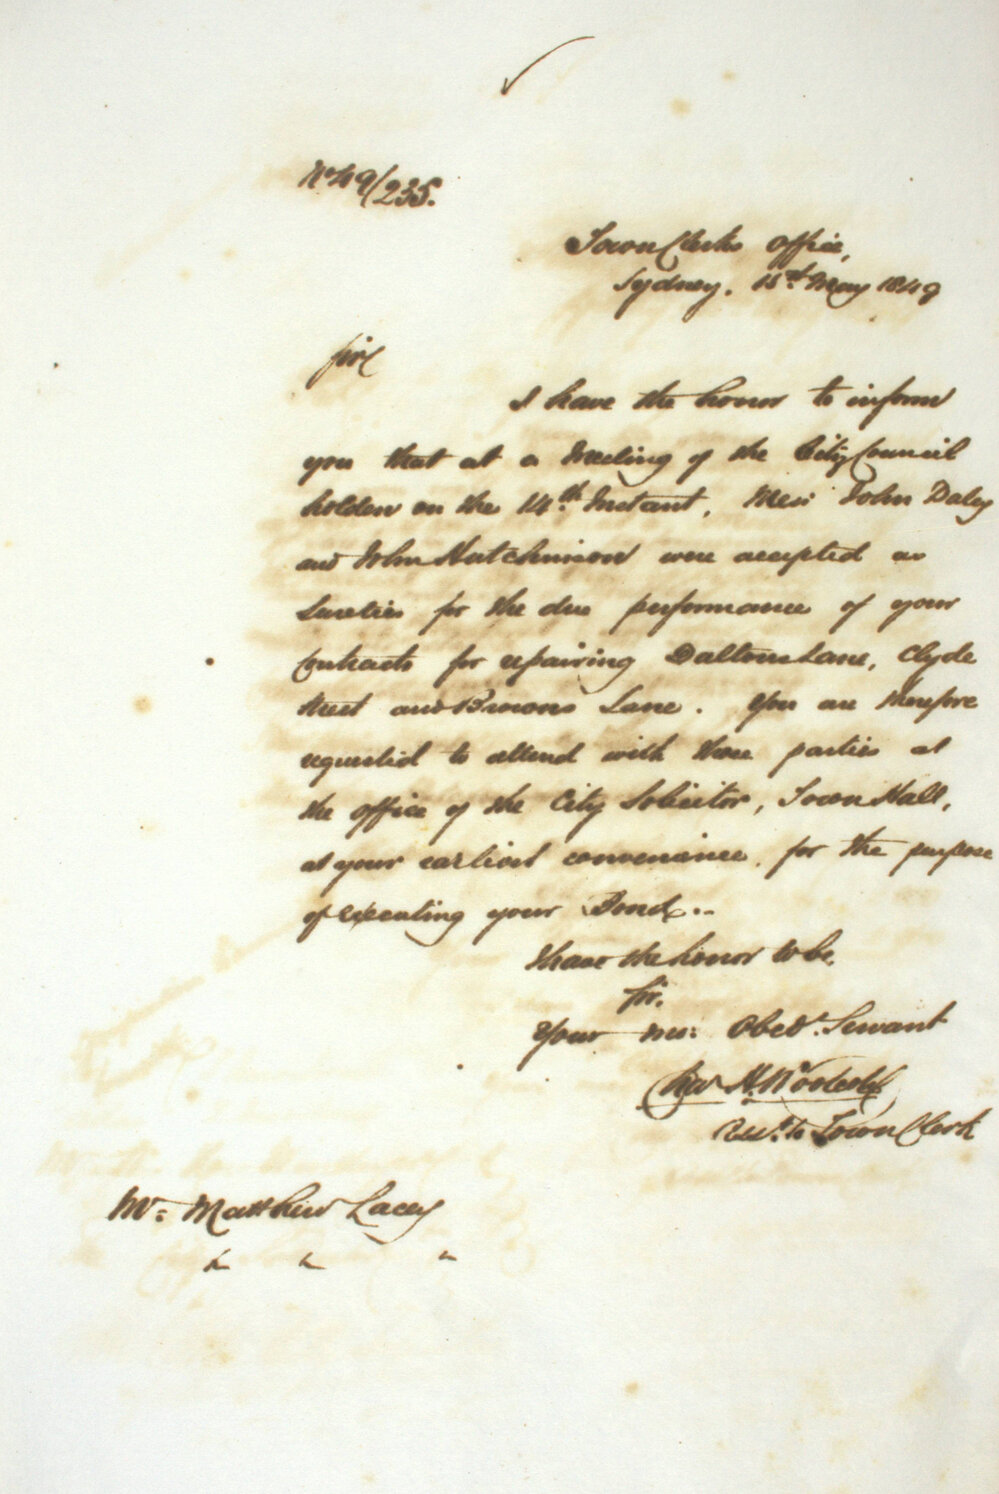 No 49/235.
Town Clerks Office,
Sydney. 15th May 1849
Sir
I have the honor to inform
you that at a Meeting of the City Council
holden on the 14th Instant, Mess: John Daley
and John Hutchinson were accepted as
Sureties for the due performance of your
Contracts for repairing Daltons Lane, Clyde
Street and Browns Lane. You are therefore
requested to attend with these parties at
the office of the City Solicitor, Town Hall,
at your earliest convenience, for the purpose
of executing your Bond..
I have the honor to be,
Sir,
Your mo: Obed. Servant
Chas H. Woolcott
to Town Clerk
Mr: Matthew Lacey
" " "